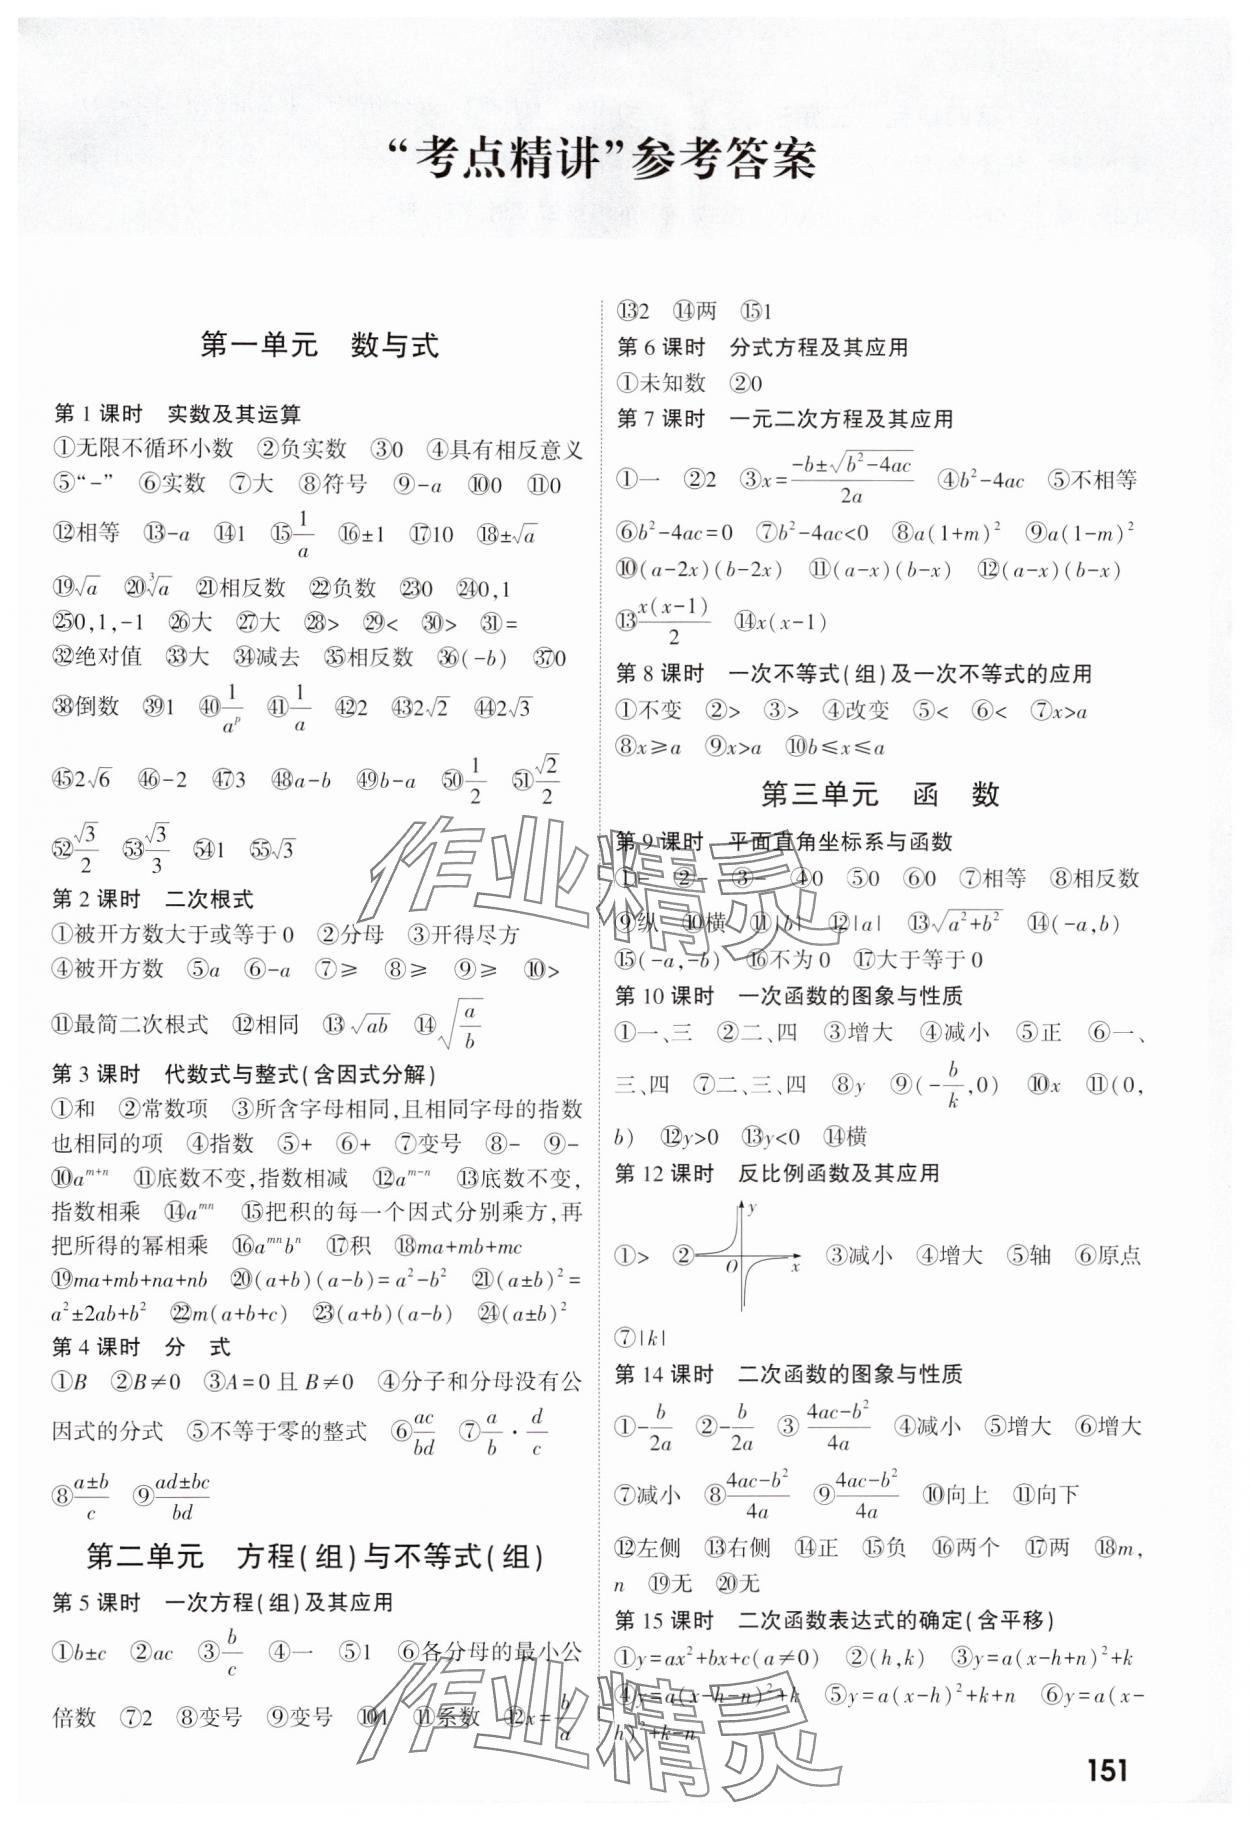 “考点精讲”参考答案
第一单元　数与式
第 1 课时　实数及其运算
①无限不循环小数　②负实数　③0　④具有相反意义
⑤“-”　⑥实数　⑦大　⑧符号　⑨-a　⑩0　⑪0
⑫相等　⑬-a　⑭1　⑮1/a　⑯±1　⑰10　⑱±√a
⑲√a　⑳∛a　㉑相反数　㉒负数　㉓0　㉔0,1
㉕0,1,-1　㉖大　㉗大　㉘>　㉙<　㉚>　㉛=
㉜绝对值　㉝大　㉞减去　㉟相反数　㊱(-b)　㊲0
㊳倒数　㊴1　㊵1/a^p　㊶1/a　㊷2　㊸2√2　㊹2√3
㊺2√6　㊻-2　㊼3　㊽a-b　㊾b-a　㊿1/2　51 √2/2
52 √3/2　53 √3/3　54 1　55 √3
第 2 课时　二次根式
①被开方数大于或等于 0　②分母　③开得尽方
④被开方数　⑤a　⑥-a　⑦≥　⑧≥　⑨≥　⑩>
⑪最简二次根式　⑫相同　⑬√(ab)　⑭√(a/b)
第 3 课时　代数式与整式(含因式分解)
①和　②常数项　③所含字母相同,且相同字母的指数
也相同的项　④指数　⑤+　⑥+　⑦变号　⑧-　⑨-
⑩a^(m+n)　⑪底数不变,指数相减　⑫a^(m-n)　⑬底数不变,
指数相乘　⑭a^(mn)　⑮把积的每一个因式分别乘方,再
把所得的幂相乘　⑯a^(mn)b^n　⑰积　⑱ma+mb+mc
⑲ma+mb+na+nb　⑳(a+b)(a-b)=a²-b²　㉑(a±b)²=
a²±2ab+b²　㉒m(a+b+c)　㉓(a+b)(a-b)　㉔(a±b)²
第 4 课时　分　式
①B　②B≠0　③A=0 且 B≠0　④分子和分母没有公
因式的分式　⑤不等于零的整式　⑥ac/bd　⑦a/b·d/c
⑧(a±b)/c　⑨(ad±bc)/bd
第二单元　方程(组)与不等式(组)
第 5 课时　一次方程(组)及其应用
①b±c　②ac　③b/c　④一　⑤1　⑥各分母的最小公
倍数　⑦2　⑧变号　⑨变号　⑩1　⑪系数　⑫x=b/a
⑬2　⑭两　⑮1
第 6 课时　分式方程及其应用
①未知数　②0
第 7 课时　一元二次方程及其应用
①一　②2　③x=(-b±√(b²-4ac))/2a　④b²-4ac　⑤不相等
⑥b²-4ac=0　⑦b²-4ac<0　⑧a(1+m)²　⑨a(1-m)²
⑩(a-2x)(b-2x)　⑪(a-x)(b-x)　⑫(a-x)(b-x)
⑬x(x-1)/2　⑭x(x-1)
第 8 课时　一次不等式(组)及一次不等式的应用
①不变　②>　③>　④改变　⑤<　⑥<　⑦x>a
⑧x≥a　⑨x>a　⑩b≤x≤a
第三单元　函　数
第 9 课时　平面直角坐标系与函数
①-　②-　③-　④0　⑤0　⑥0　⑦相等　⑧相反数
⑨纵　⑩横　⑪|b|　⑫|a|　⑬√(a²+b²)　⑭(-a,b)
⑮(-a,-b)　⑯不为 0　⑰大于等于 0
第 10 课时　一次函数的图象与性质
①一、三　②二、四　③增大　④减小　⑤正　⑥一、
三、四　⑦二、三、四　⑧y　⑨(-b/k,0)　⑩x　⑪(0,
b)　⑫y>0　⑬y<0　⑭横
第 12 课时　反比例函数及其应用
①>　② y O x　③减小　④增大　⑤轴　⑥原点
⑦|k|
第 14 课时　二次函数的图象与性质
①-b/2a　②-b/2a　③(4ac-b²)/4a　④减小　⑤增大　⑥增大
⑦减小　⑧(4ac-b²)/4a　⑨(4ac-b²)/4a　⑩向上　⑪向下
⑫左侧　⑬右侧　⑭正　⑮负　⑯两个　⑰两　⑱m,
n　⑲无　⑳无
第 15 课时　二次函数表达式的确定(含平移)
①y=ax²+bx+c(a≠0)　②(h,k)　③y=a(x-h+n)²+k
④y=a(x-h-n)²+k　⑤y=a(x-h)²+k+n　⑥y=a(x-
h)²+k-n
151
作业精灵
作业精灵